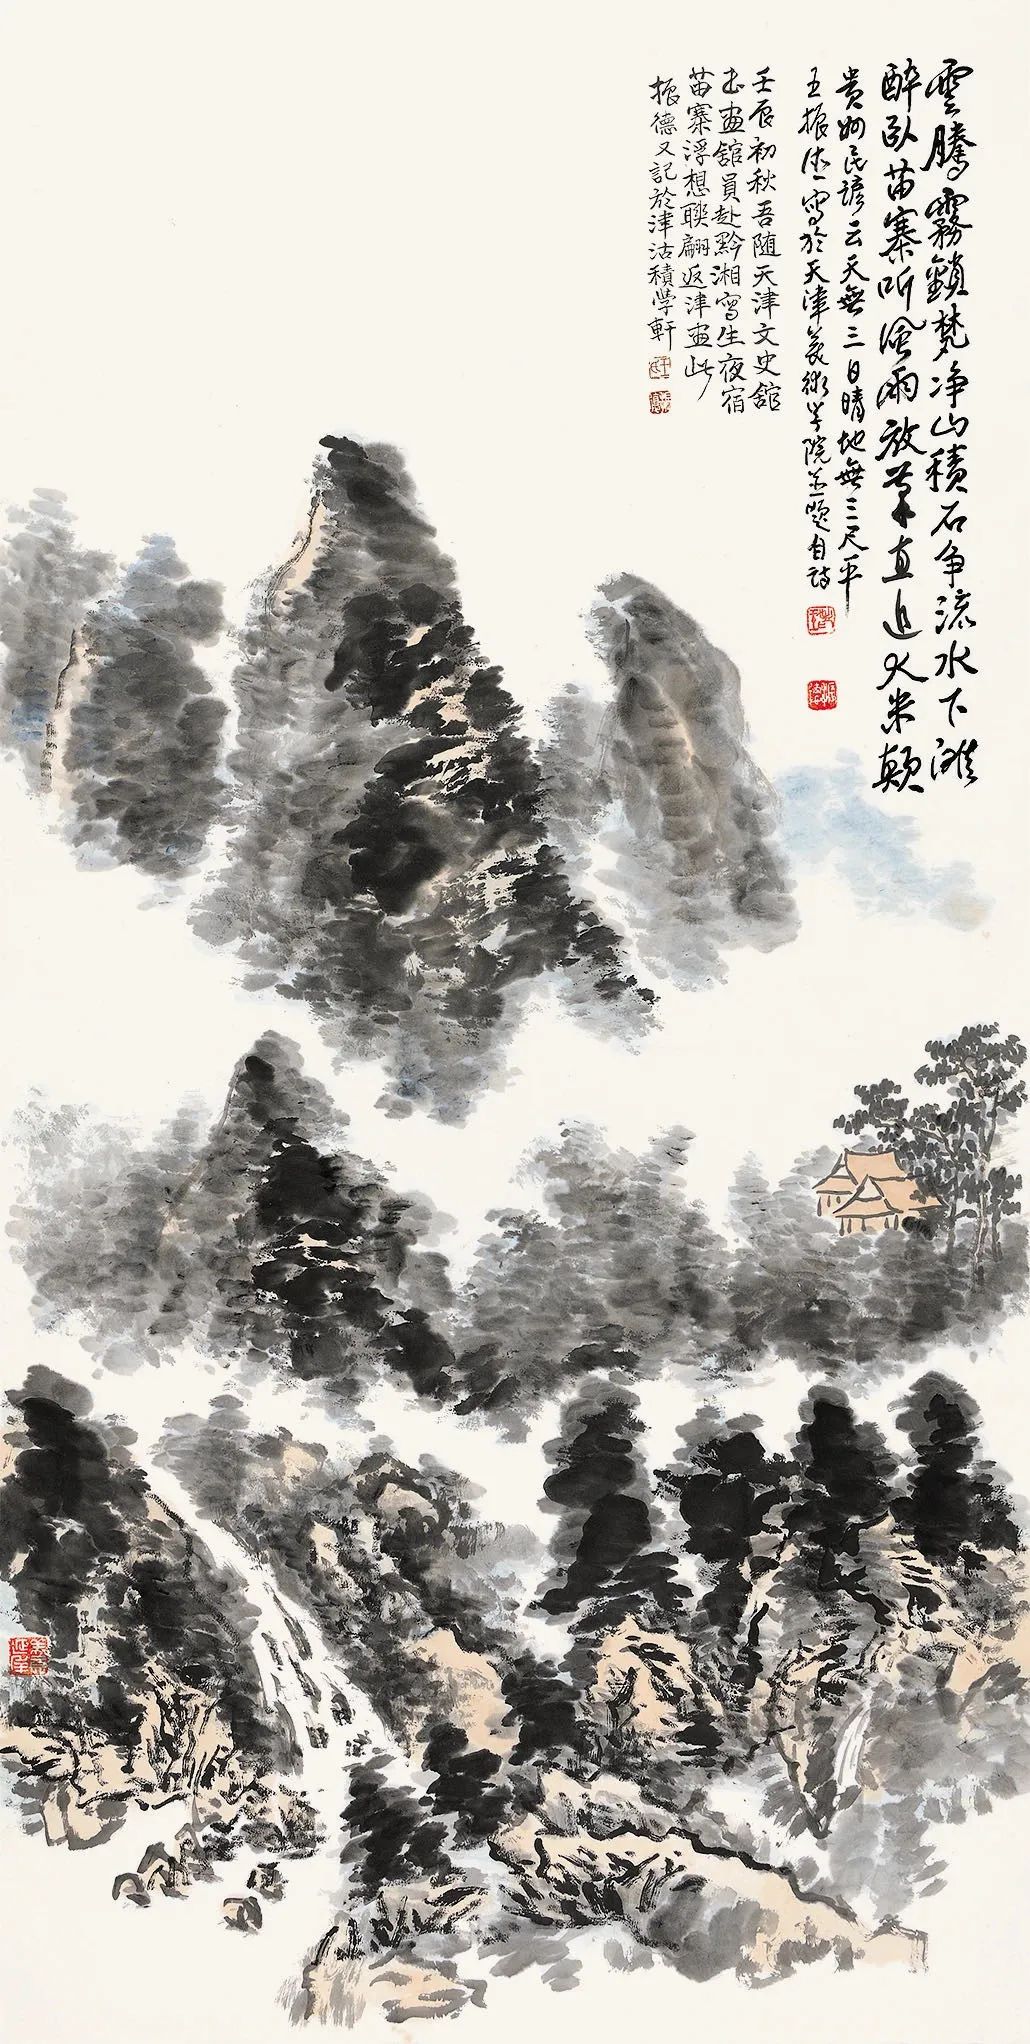 雲騰霧鎖梵净山積石争流水下灘
醉卧苗寨听風雨放筆直追大米顛
貴州民諺云天無三日晴地無三尺平
王振德寫於天津美術学院并題自詩
壬辰初秋吾随天津文史館
书画館員赴黔湘寫生夜宿
苗寨浮想聯翩返津画此
振德又記於津沽積学軒